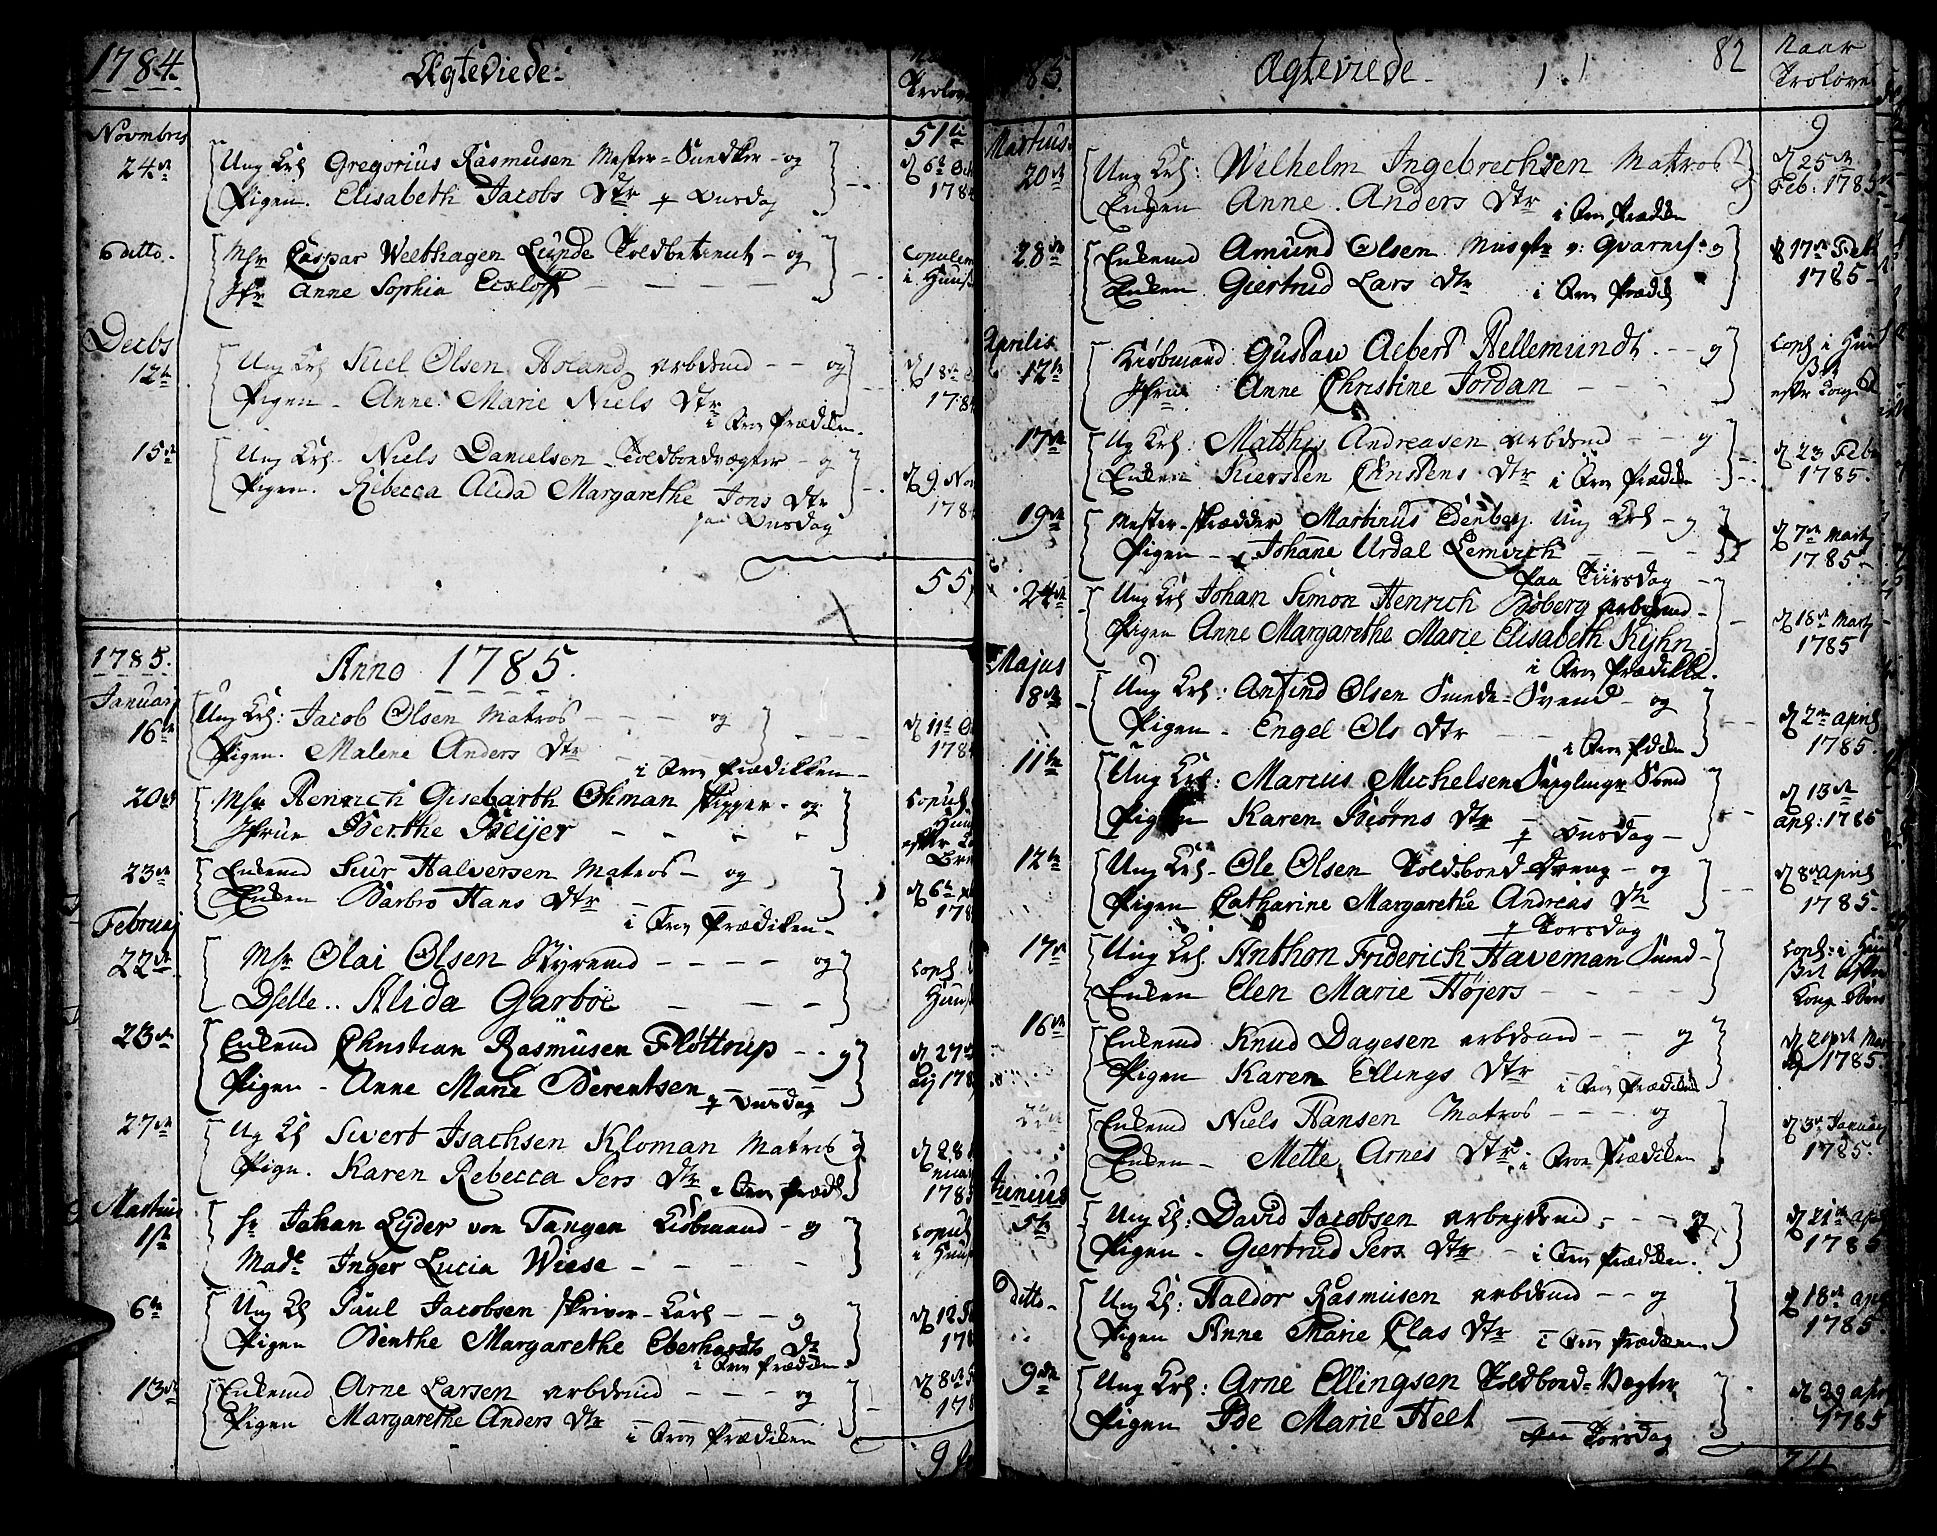 1784.
Ægteviede.
Trolove
Novembris
24de
Ung Krl Gregorius Rasmusen Mester-Snedker - og
Pigen. Elisabeth Jacobs Dtr p Onsdag
51ti
d 6te Oct
1784
6 ditto.
Msr Caspar Welthagen Lynde Toldbetient - og
Jfr Anne Sophia Ecxloff
Copuleret
i Huuset
Decbs
12te
Ung Krl Kiel Olsen Aoland arbdmd - - og
Pigen - Anne Marie Niels Dtr
i Fro Prædiken.
d 18de
1784
15de
Ung Krl. Niels Danielsen Toldbodvægter - og
Pigen. Ribecca Alida Margarethe Jons Dtr
paa Onsdag
d 9. Nov
1784
55
1785.
Anno 1785.
Januarj
16de
Ung Krl: Jacob Olsen Matros - - - og
Pigen. Malene Anders Dtr
i Fro Prædikken
d 11te
1784
20de
Msr Henrich Gisebarth Ohman Skipper - og
Jfrue Berthe Beyer
Copul.
23de
Enkemd Siur Halversen Matros - og
Enken Barbro Hans Dtr
i Fro Prædiken
d 6te
178
Februarj
22de
Msr Olai Olsen Styrmd - - - - og
Dselle.. Alida Garboe
Copl.
Huus
23de
Enkemd Christian Rasmusen Flottrup - - og
Pigen - Anne Marie Berentsen
p Onsdag
d 27
178
27de
Ug Kl Sivert Isachsen Kloman Matros og
Pign. Karen Rebecca Pers Dtr i Fro Præd.
d 28
1785
Martius
1ste
Sr Johan Lyder von Tangen Kiøbmand - og
Made Inger Lucia Wiese
Copul
i Huus
6te
Ung Kl Paul Jacobsen Skriver-Karl - - og
Pigen Benthe Margarethe Eberhardts Dtr
i Fro Prædiken
d 12
178
13de
Enkemd Arne Larsen arbdmd - - - - og
Pigen Margarethe Anders Dtr i Fro Prædiken
d 8de
178
9
85
Ægteviede
82
Naar
Trolovet
Martius
20de
Ung Krl: Wilhelm Ingebrechsen Matros
Enken Anne Anders Dtr i Fro Prædiken
9
d 25de
Feb: 1785
28de
Enkemd Amund Olsen Musqtr v: Qvarnis: og
Enken Giertrud Lars Dtr i Fro Prædik
d 17de Feb
1785
Aprilis
12te
Kiøbmand Gustav Aebert Hellemundt. - - og
Jfrue Anne Christine Jordan
Copl i Huu
efter Kong
17de
Ug Krl: Matthis Andreasen arbdmd - - og
Enken Kiersten Christens Dtr i Fro Prædiken
d 23 Febr
1785.
19de
Mester-Skrædder Martinus Edenberg. Ung Krl - og
Pigen - Johane Urdal Lemvich
paa Tiirsdag
d 7de Marty
1785
24de
Ung Krl Johan Simon Henrich Boberg arbdmd
Pigen Anne Margarethe Marie Elisabeth Kyhn
i Fro Prædikk.
d 18de Marty
1785
Majus
18de
Ung Krl: Anfind Olsen Smede-Svend - og
Pigen - Engel Ols Dtr
i Fro Pdiken
d 2de april
1785.
11te
Ung Krl: Marius Michelsen Svend
Pigen Karen Biørns Dtr
p Onsdag
d 13de
apl: 1785
12te
Ung Krl - Ole Olsen Toldbod Dreng - og
Pigen Catharine Margarethe Andreas Dtr
p Torsdag
d 8de April
1785.
17de
Ung Krl Anthon Friderich Haveman Smed
Enken Elen Marie Højers
Copl: i Huu
set efter
Kong Brev
16de
Enkemd Knud Dagesen arbdmd - - og
Pigen Karen Ellings Dtr i Fro Prædiken
1785.
22de
Enkemd Niels Hansen Matros - - - og
Enken - Mette Arnes Dtr i Fro Prædiken
d 3de Januarj
1785.
Junius
5te
Ung Kl: David Jacobsen arbejdsmd. - - - og
Pigen - Giertrud Pers Dtr - i Fro Prædiken.
d 21de apl
1785
ditto
Ung Kl: Haldor Rasmusen arbdmd - - og
Pigen Anne Marie Clas Dtr i Fro Prædiken
d 18de apl
1785.
9de
Ung Krl: Arne Ellingsen Toldbod-Vægter
Pigen Ide Marie Helt
paa Torsdag
d 29 april
1785
24